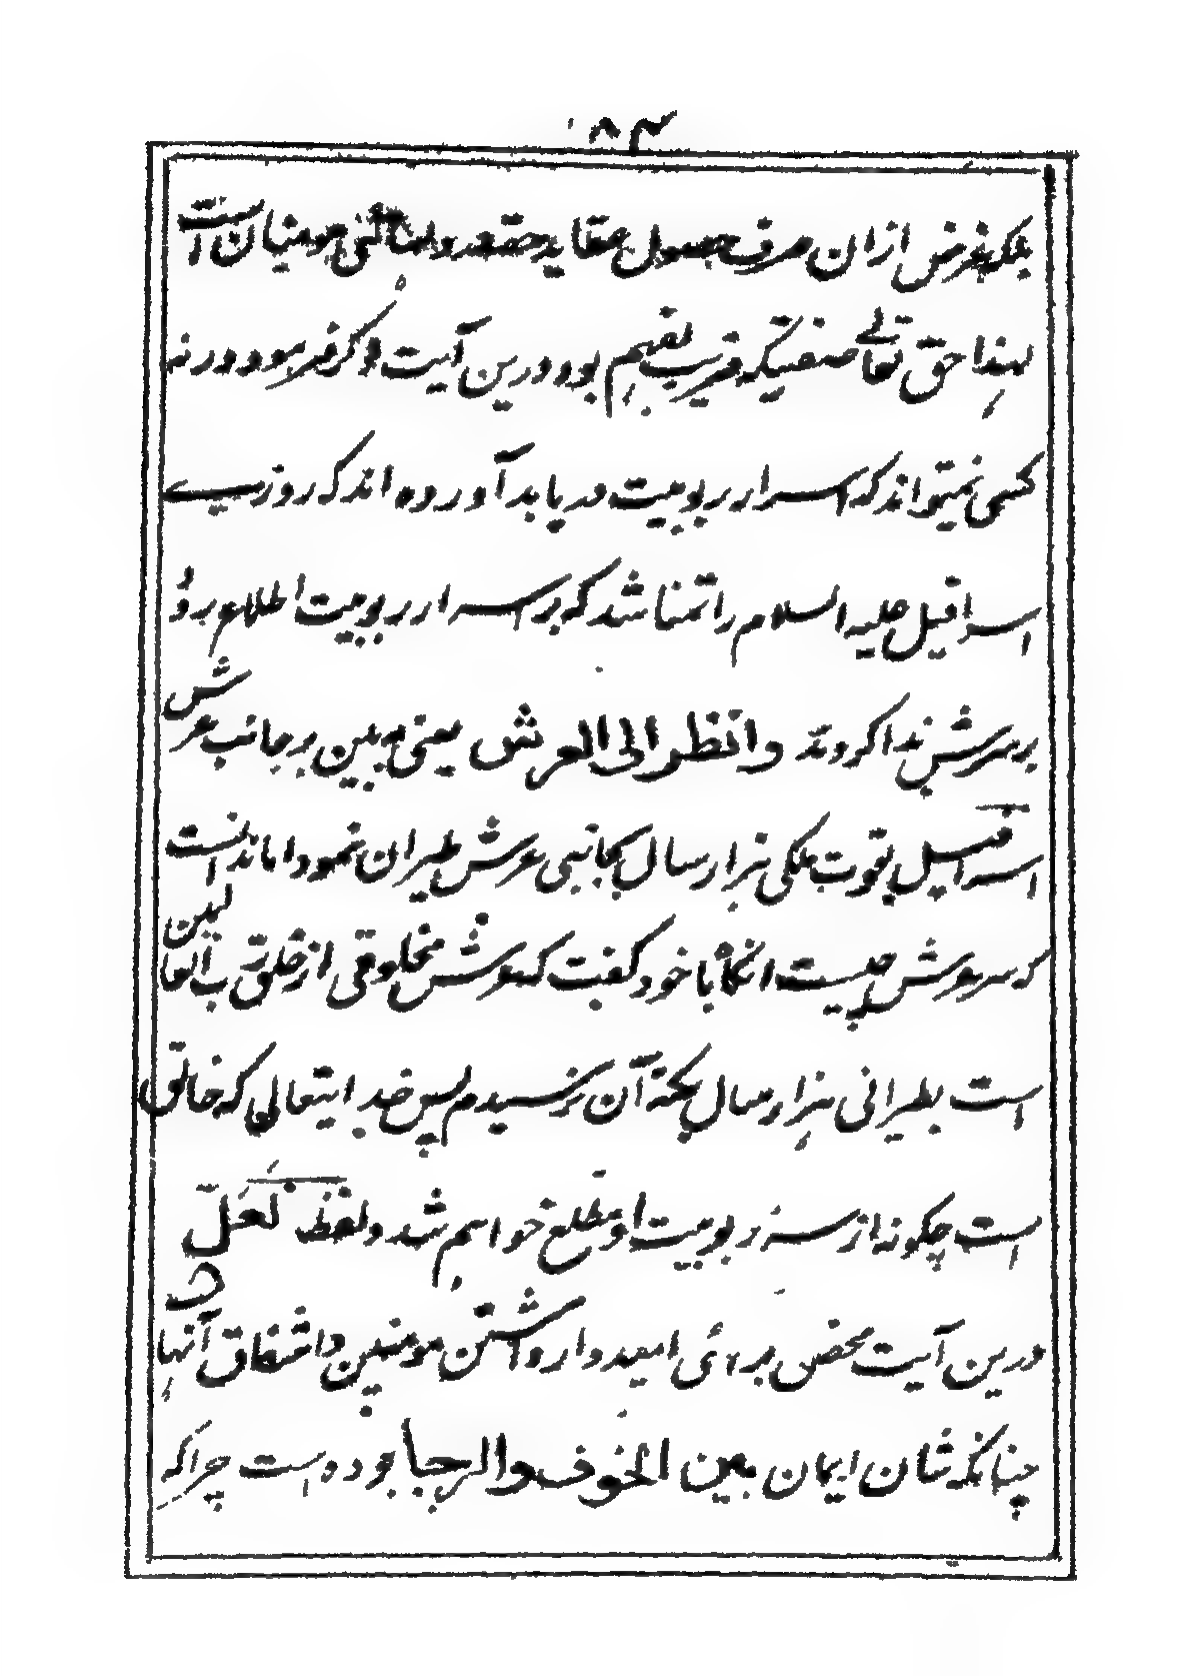 ۸۴
بلکه غرض ازان صرف حصول عقاید حقه و مومنان است
لهذا حق تعالے صنفتیکه قریب بفهم بود درین آیت ذکر فرمود ورنه
کسی نمیتواند که اسرار ربوبیت دریابد آورده اند که روزے
اسرافیل علیه السلام را تمنا شد که بر اسرار ربوبیت اطلاع رو
بر سرش ندا کردند وانظر الی العرش یعنی ببین بر جانب عرش
اسرافیل بقوت ملکی هزار سال بجانب عرش طیران نمود اما ندانست
که سر عرش چیست با خود گفت که عرش مخلوقی از خلق رب العالمین
است بطیرانی هزار سال بکنه آن نرسیدم پس خدایتعالی که خالق
است چگونه از سر ربوبیت او مطلع خواهم شد و لفظ لَعَلَّ
درین آیت محض برای امیدوار داشتن مومنین و اشفاق آنها
چنانکه شان ایمان بین الخوف والرجا بوده است چراکه